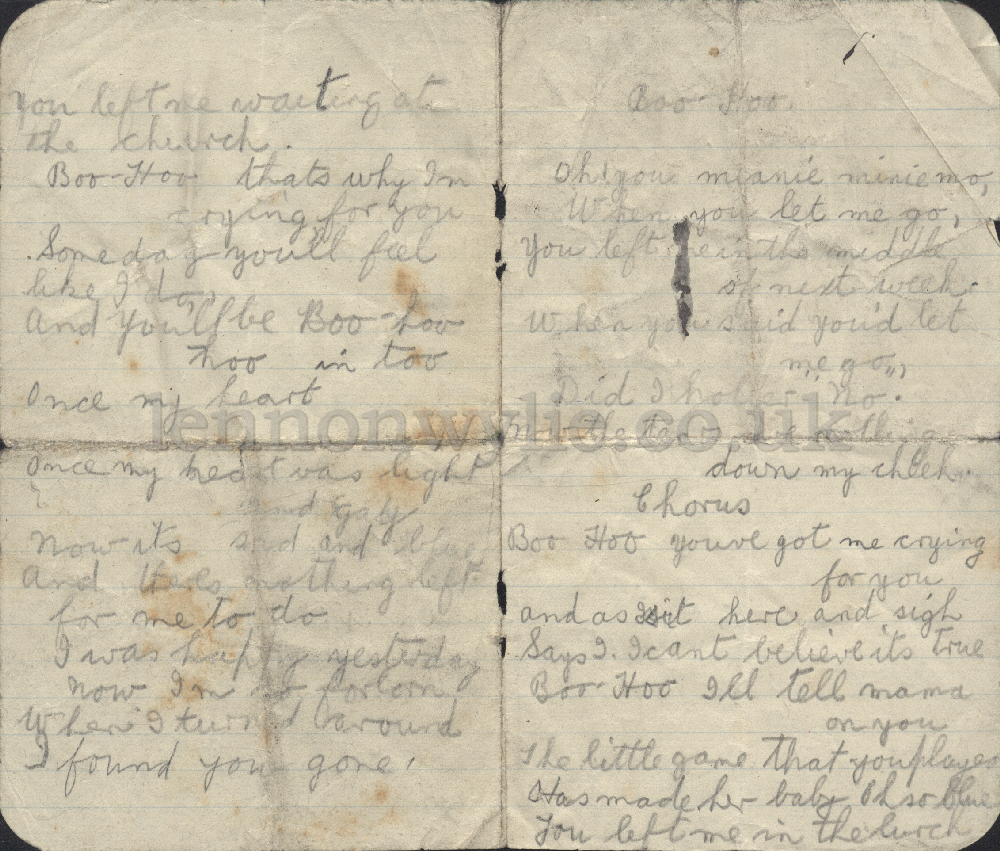 Boo-Hoo.
Oh! you mianie miniemo,
When you let me go,
You left me in the middle
of next week.
When you said you'd let
me go,,,
Did I holler "No.
down my cheek.
Chorus
Boo Hoo youve got me crying
for you
and as I sit here and sigh
Says I. I cant believe its true
Boo-Hoo Ill tell mama
on you
The little game that you played
Has made her baby Oh so blue
You left me in the lurch
You left me waiting at
the church.
Boo-Hoo thats why Im
crying for you
Someday you'll feel
like I do,
And You'll be Boo-hoo
hoo in too
Once my heart
Once my heart was light
and gay
Now its sad and blue
And theres nothing left
for me to do
I was happy yesterday
Now Im so forlorn
When I turned around
I found you gone.
lennonwylie.co.uk